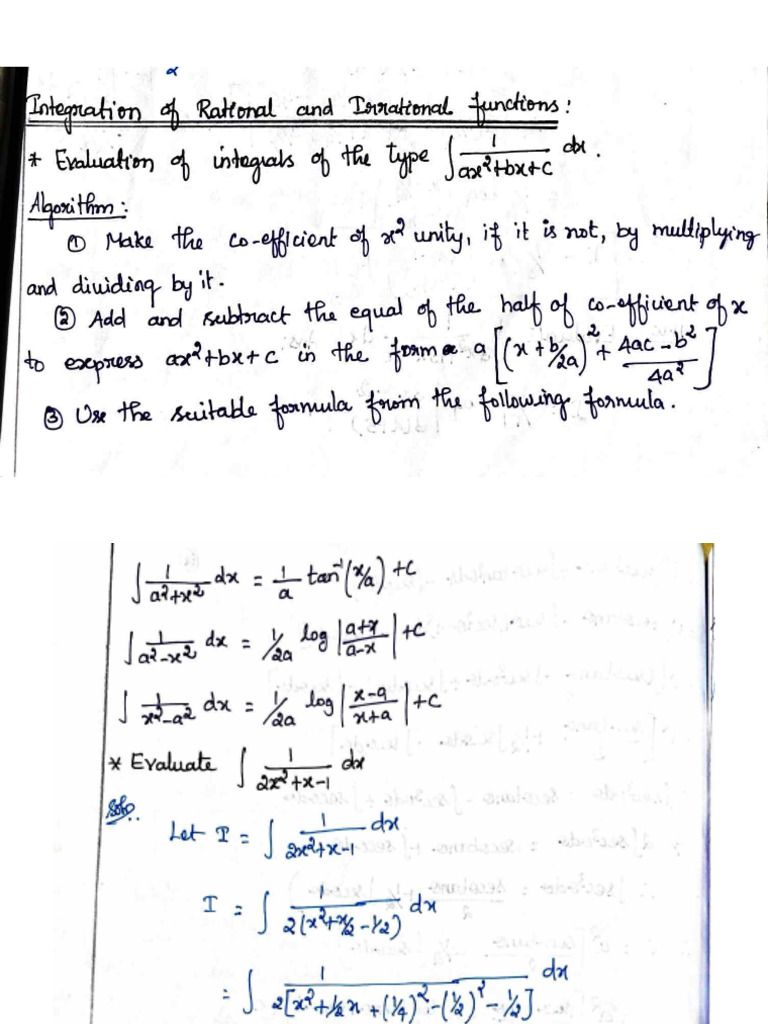 α
Integration of Rational and Irrational functions:
* Evaluation of integrals of the type ∫ 1/(ax²+bx+c) dx.
Algorithm:
① Make the co-efficient of x² unity, if it is not, by multiplying
and dividing by it.
② Add and subtract the equal of the half of co-efficient of x
to express ax²+bx+c in the form a [(x + b/2a)² + (4ac - b²)/4a²]
③ Use the suitable formula from the following formula.
∫ 1/(a²+x²) dx = 1/a tan⁻¹(x/a) + c
∫ 1/(a²-x²) dx = 1/2a log |(a+x)/(a-x)| + c
∫ 1/(x²-a²) dx = 1/2a log |(x-a)/(x+a)| + c
* Evaluate ∫ 1/(2x²+x-1) dx
Soln.
Let I = ∫ 1/(2x²+x-1) dx
I = ∫ 1/(2(x²+x/2 - 1/2)) dx
= ∫ 1/(2[x²+1/2x + (1/4)² - (1/2)² - 1/2]) dx